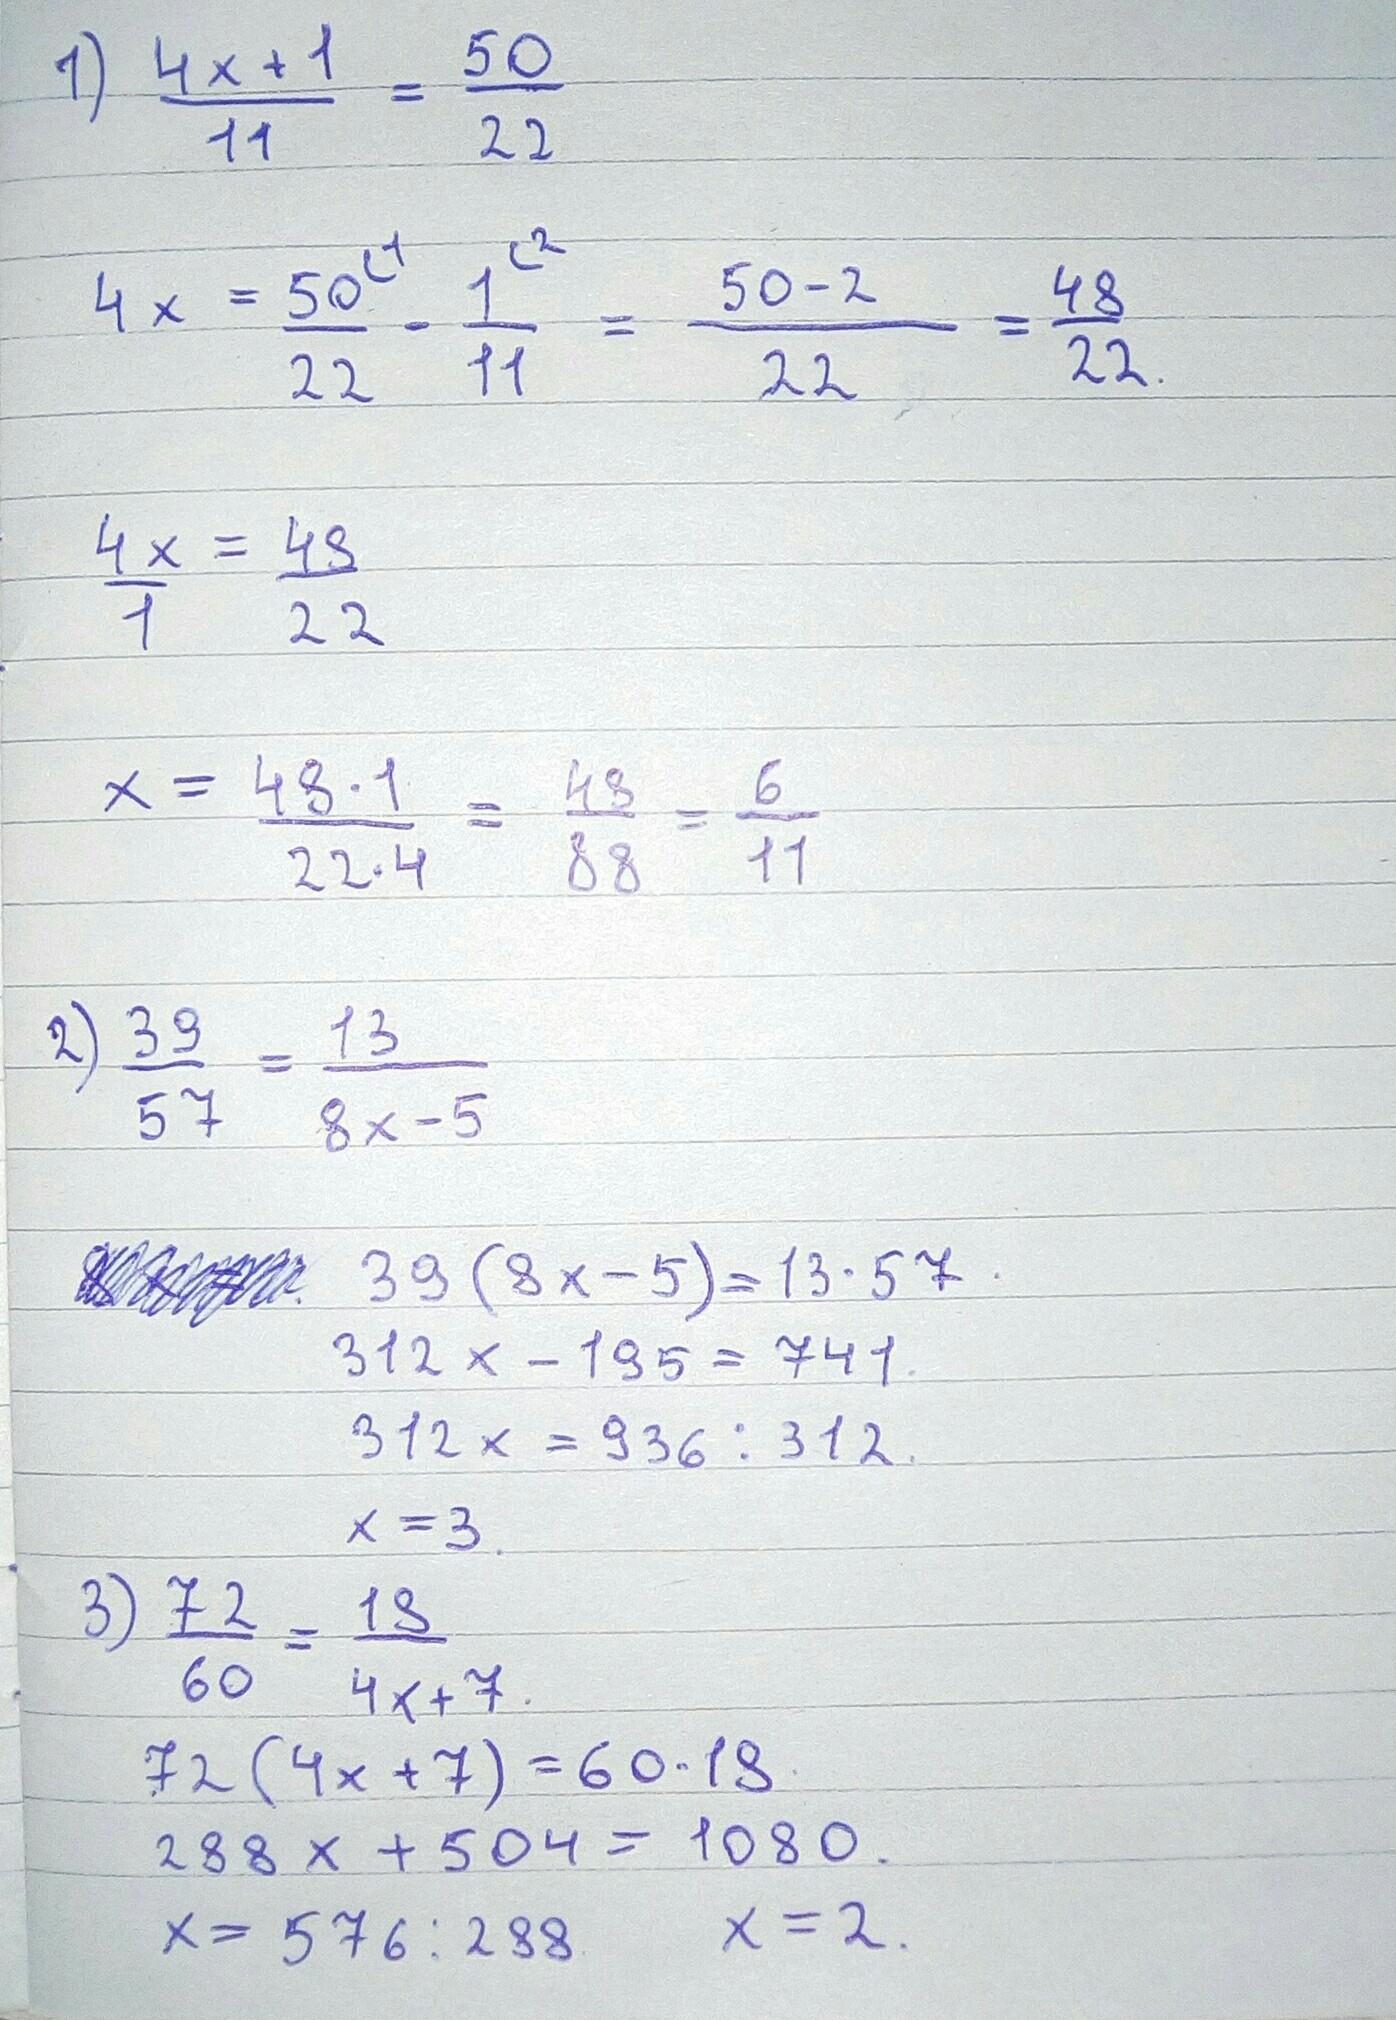 1) (4x+1)/11 = 50/22
4x = 50/22 (1 - 1/11 (2 = (50-2)/22 = 48/22.
4x/1 = 48/22
x = (48·1)/(22·4) = 48/88 = 6/11
2) 39/57 = 13/(8x-5)
39(8x-5)=13·57.
312x-195=741.
312x=936:312.
x=3.
3) 72/60 = 18/(4x+7).
72(4x+7)=60·18.
288x+504=1080.
x=576:288 x=2.